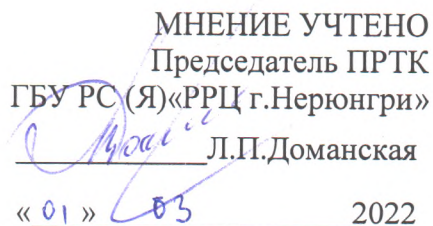 МНЕНИЕ УЧТЕНО
Председатель ПРТК
ГБУ РС (Я)«РРЦ г.Нерюнгри»
Л.П.Доманская
« 01 » 03 2022